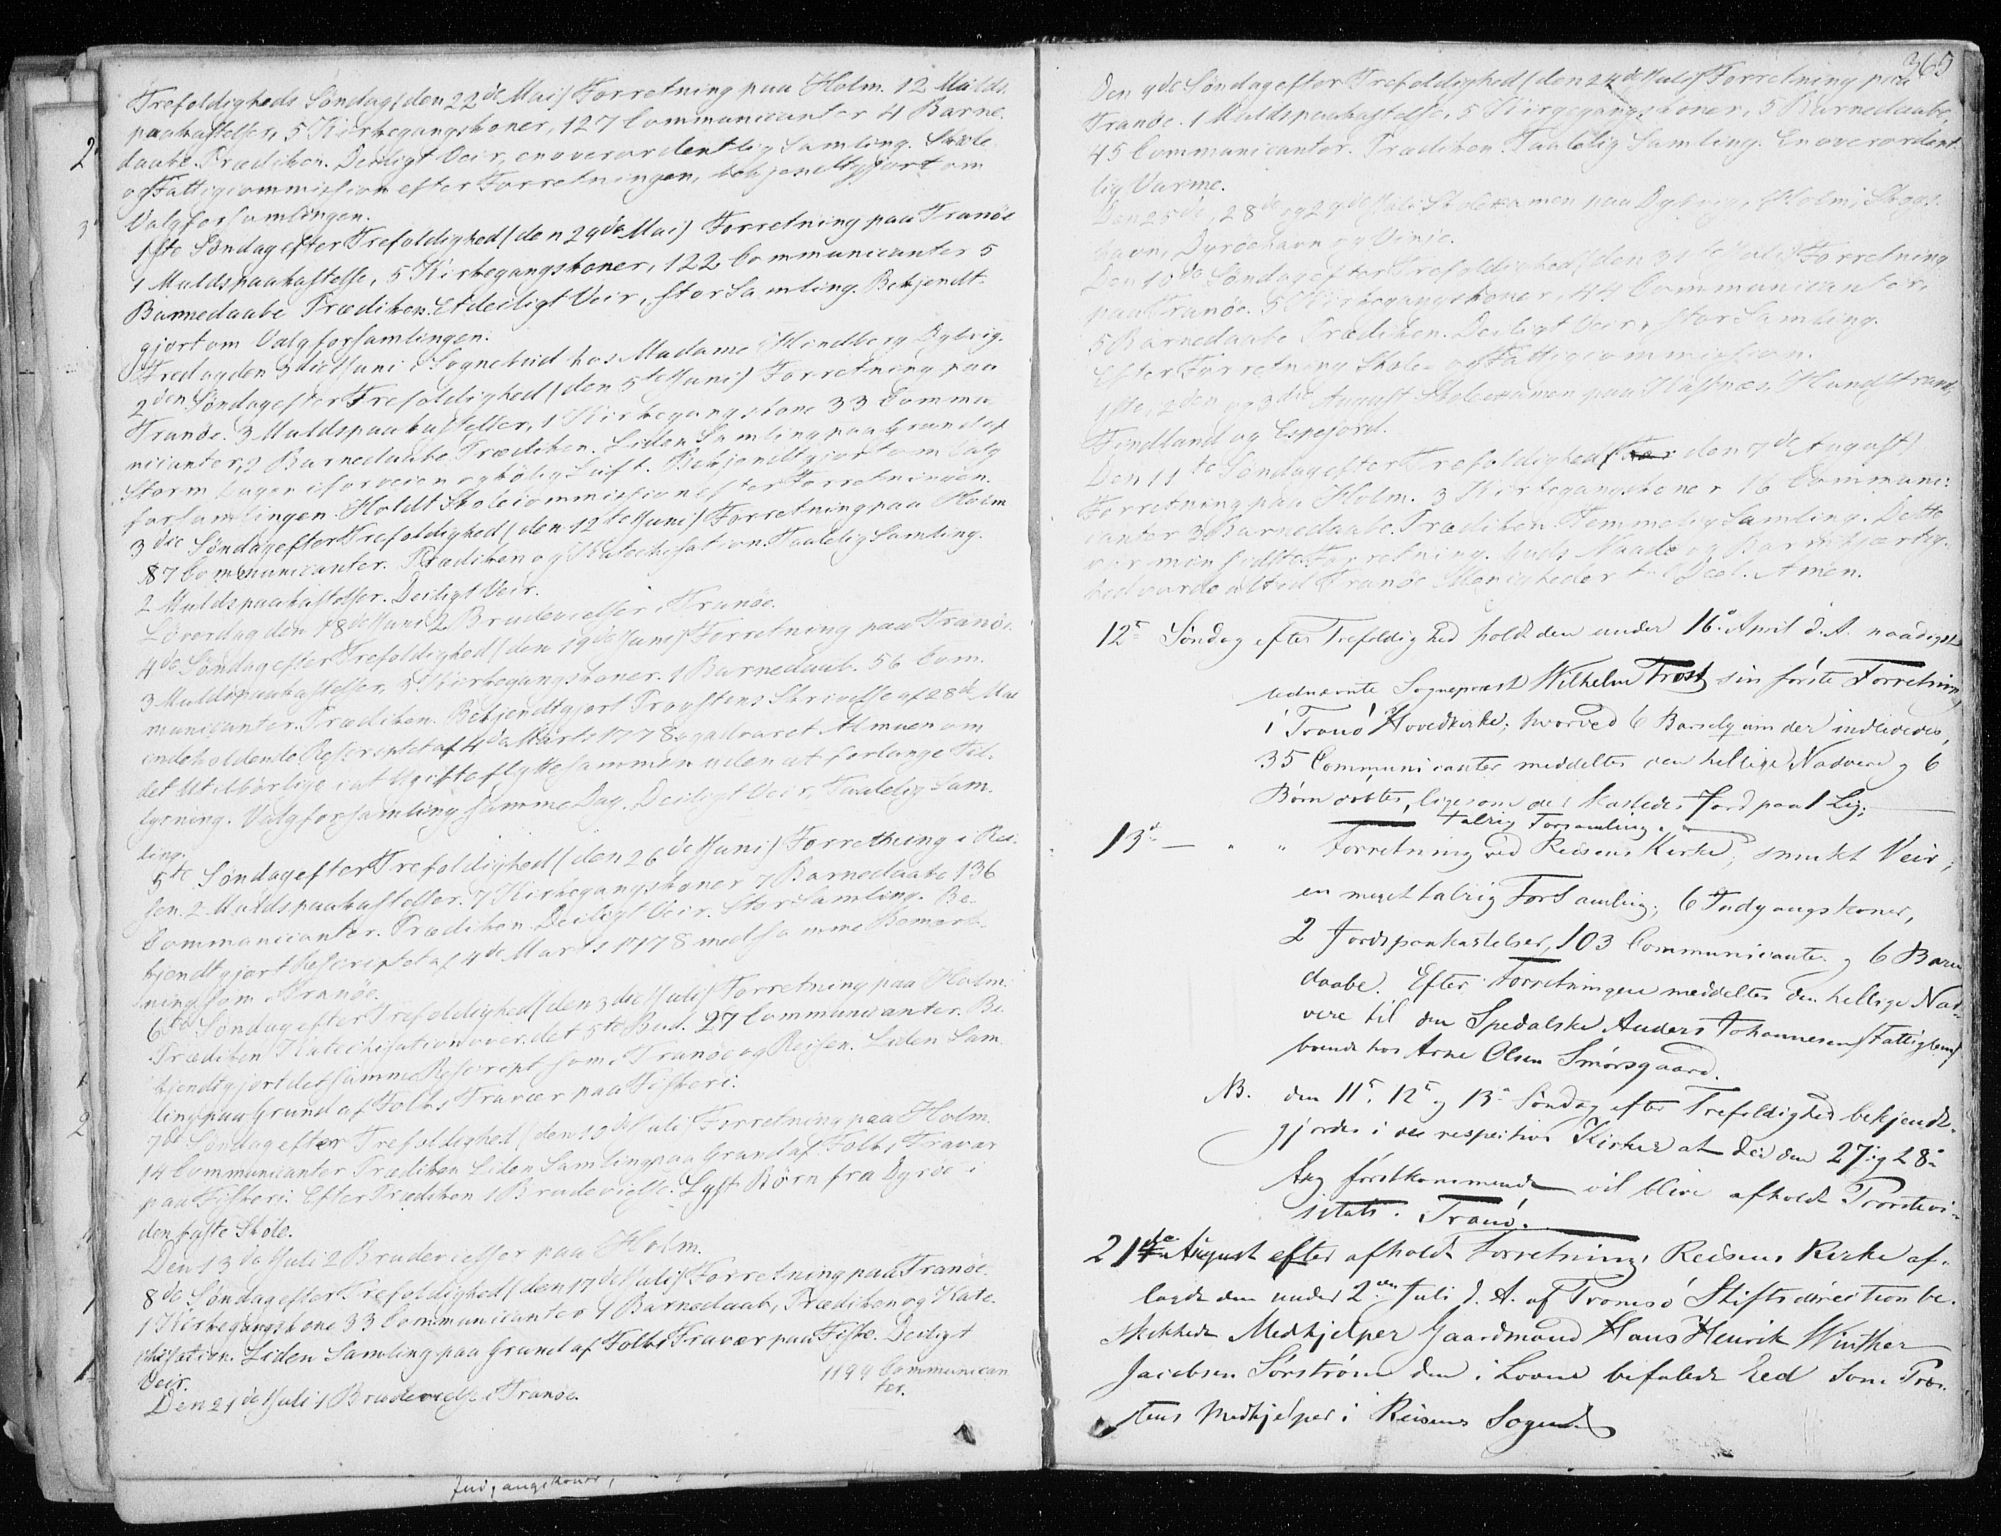 Trefoldigheds Søndag (den 22de Mai) Forretning paa Holm. 12 Mulds-
paakastelser, 5 Kirkegangskoner, 127 Communicanter 4 Barne-
daabe. Prædiken. Deiligt Veir, en overordentlig Samling. Skole
og Fattigcommission efter Forretningen, bekjendtgjort om
Valgforsamlingen.
1ste Søndag efter Trefoldighed (den 29de Mai) Forretning paa Tranöe
1 Muldspaakastelse, 5 Kirkegangskoner, 122 Communicanter 5
Barnedaabe Prædiken. Et deiligt Veir, stor Samling. Bekjendt-
gjort om Valgforsamlingen.
Fredag den 3die Juni i Sognebud hos Madame Hindberg Dybvig.
2den Søndag efter Trefoldighed (den 5te Juni) Forretning paa
Tranöe. 3 Muldspaakastelser, 1 Kirkegangskone 33 Commu-
nicanter, 2 Barnedaabe Prædiken. Liden Samling paa Grund af
Storm Dagen iforveien og kølig Luft. Bekjendtgjort om Valg
forsamlingen. Holdt Skolecommission efter Forretningen.
3die Søndag efter Trefoldighed (den 12te Juni) Forretning paa Holm
87 Communicanter. Prædiken og Katechisation. Taalelig Samling.
2 Muldspaakastelser. Deiligt Veir.
Løverdag den 18de Juni 2 Brudevielser i Tranöe.
4de Søndag efter Trefoldighed (den 19de Juni) Forretning paa Tranöe.
3 Muldspaakastelser, 5 Kirkegangskoner. 1 Barnedaab. 56 Com-
municanter. Prædiken. Bekjendtgjort Provstens Skrivelse af 28de Mai
indeholdende Rescriptet af 4de Marts 1778 og advaret Almuen om
det Utilbørlige i at Ugifte flytte sammen uden at forlange Til-
lysning. Valgforsamling samme Dag. Deiligt Veir, Taalelig Sam-
ling.
5te Søndag efter Trefoldighed (den 26de Juni) Forretning i Rei-
sen. 2 Muldspaakastelser. 7 Kirkegangskoner 7 Barnedaabe 136
Communicanter. Prædiken. Deiligt Veir. Stor Samling. Be-
kjendtgjort Rescriptet af 4de Marts 1778 med samme Bemærk-
ning som i Tranöe.
6te Søndag efter Trefoldighed (den 3die Juli) Forretning paa Holm.
Prædiken Katechisation over det 5te Bud. 27 Communicanter. Be-
kjendtgjort det samme Rescript som i Tranöe og Reisen. Liden Sam
ling paa Grund af Folks Fravær paa Fiskeri.
7de Søndag efter Trefoldighed (den 10de Juli) Forretning paa Holm.
14 Communicanter Prædiken Liden Samling paa Grund af Folks Fravær
paa Fiskeri. Efter Prædiken 1 Brudevielse. Lyst Børn fra Dyröe i
den faste Skole.
Den 13de Juli 2 Brudevielser paa Holm.
8de Søndag efter Trefoldighed (den 17de Juli) Forretning paa Tranöe.
1 Kirkegangskone 33 Communicanter 1 Barnedaab, Prædiken og Kate-
chisation. Liden Samling paa Grund af Folks Fravær paa Fiske. Deiligt
Veir.
1199 Communican
ter.
Den 21de Juli 1 Brudevielse i Tranöe.
Indgangskoner,
365
Den 9de Søndag efter Trefoldighed (den 24de Juli) Forretning paa
Tranöe. 1 Muldspaakastelse, 5 Kirkegangskoner, 5 Barnedaabe,
45 Communicanter. Prædiken. Taalelig Samling. En overordent-
lig Varme.
Den 25de, 28de og 29de Juli Skoleexamen paa Dybvig, Holm, Skogs-
havn, Dyröehavn og Vinje.
Den 10de Søndag efter Trefoldighed (den 31te Juli) Forretning
paa Tranöe. 5 Kirkegangskoner, 44 Communicanter,
5 Barnedaabe Prædiken. Deiligt Veir, stor Samling.
Efter Forretning Skole- og Fattigcommission.
1ste, 2den og 3die August Skoleexamen paa Klöfnæs, Hundstrand,
Findland og Espejord.
Den 11te Søndag efter Trefoldighed den 7de August
Forretning paa Holm. 3 Kirkegangskoner 16 Communi-
canter 3 Barnedaabe. Prædiken. Temmelig Samling. Dette
var min sidste Forretning. Guds Naade og Barmhjertig-
hed vorde altid Tranöe Menigheder til Deel. Amen.
12te Søndag efter Trefoldighed holdt den under 16de April d. A. naadigst
udnævnte Sognepræst Wilhelm Frost sin første Forretning
i Tranö Hovedkirke; hvorved 6 Barselqvinder indlededes,
35 Communicanter meddeltes den hellige Nadvere og 6
Børn døbtes, ligesom der kastedes Jord paa 1 Lig.
talrig Forsamling.
13de — " " Forretning ved Reisens Kirke; smukt Veir;
en meget talrig Forsamling; 6 Indgangskoner,
2 Jordspaakastelser, 103 Communicanter og 6 Barne
daabe. Efter Forretningen meddeltes den hellige Nad-
vere til den Spedalske Anders Johannesen (Fattiglem)
boende hos Arne Olsen Smörsgaard.
NB. den 11te, 12te og 13de Søndag efter Trefoldighed bekjendt-
gjordes i de respective Kirker at der den 27 og 28de
Aug förstkommende vil blive afholdt Provstevi-
sitats. Tranö.
21de August efter afholdt Forretning i Reisens Kirke af-
lagde den under 2den Juli d. A. af Tromsö Stiftsdirection be-
skikkede Medhjelper Gaardmand Hans Henrik Winther
Jacobsen Sörströmen den i Loven befalede Eed som Præ-
stens Medhjelper i Reisens Sogn